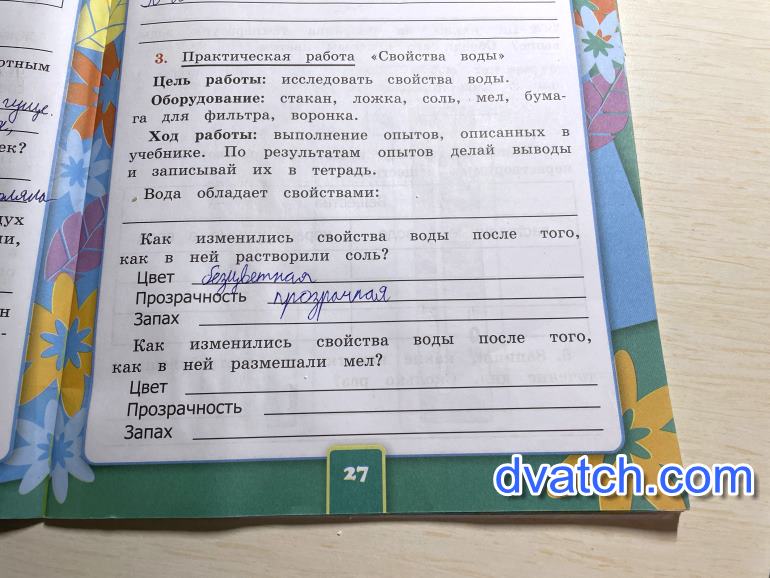 отным
гуще.
ек?
оляла
дух
ли,
н
-
3. Практическая работа «Свойства воды»
Цель работы: исследовать свойства воды.
Оборудование: стакан, ложка, соль, мел, бума-
га для фильтра, воронка.
Ход работы: выполнение опытов, описанных в
учебнике. По результатам опытов делай выводы
и записывай их в тетрадь.
Вода обладает свойствами:
Как изменились свойства воды после того,
как в ней растворили соль?
Цвет безцветная
Прозрачность прозрачная
Запах
Как изменились свойства воды после того,
как в ней размешали мел?
Цвет
Прозрачность
Запах
27
dvatch.com